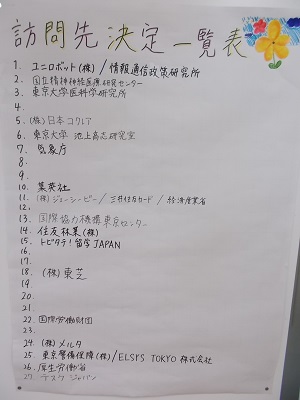 訪問先決定一覧表
1. ユニロボット(株)/情報通信政策研究所
2. 国立精神神経医療研究センター
3. 東京大学医科学研究所
4.
5. (株)日本コクレア
6. 東京大学 池上高志研究室
7. 気象庁
8.
9.
10. 集英社
11. (株)ジェーシービー/三井住友カード/経済産業省
12.
13. 国際協力機構東京センター
14. 住友林業(株)
15. トビタテ!留学JAPAN
16.
17.
18. (株)東芝
19.
20.
21.
22. 国際労働財団
23.
24. (株)メルタ
25. 東京警備保障(株)/ELSYS TOKYO 株式会社
26. 厚生労働省
27. テスク ジャパン